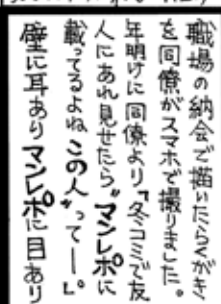 職場の納会で描いたらくがき
を同僚がスマホで撮りました。
年明けに同僚より「冬コミで友
人にあれ見せたら〝マンレポに
載ってるよね この人〟ってー」。
壁に耳ありマンレポに目あり